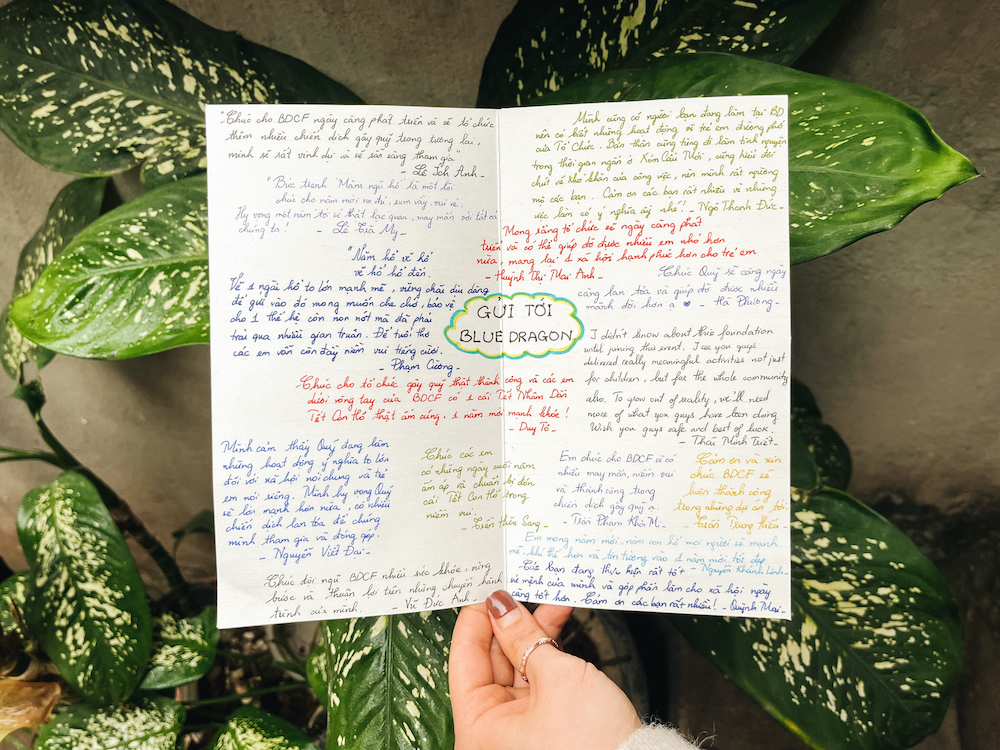 "Chúc cho BDCF ngày càng phát triển và sẽ tổ chức
thêm nhiều chiến dịch gây quỹ trong tương lai,
mình sẽ rất vinh dự và sẽ sẵn sàng tham gia"
- Lê Ích Anh -
"Bức tranh Mâm ngũ hổ là một lời
chúc cho năm mới no đủ, sum vầy, vui vẻ.
Hy vọng một năm tới sẽ thật lạc quan, may mắn với tất cả
chúng ta! - Lê Trà My -
"Năm hổ vẽ hổ
vẽ hổ hổ đến.
Vẽ 1 ngài hổ to lớn mạnh mẽ, vững chãi dịu dàng
để gửi vào đó mong muốn che chở, bảo vệ
cho 1 thế hệ còn non nớt mà đã phải
trải qua nhiều gian truân. Để tuổi thơ
các em vẫn còn đầy niềm vui tiếng cười.
- Phạm Cường -
Chúc cho tổ chức gây quỹ thật thành công và các em
dưới vòng tay của BDCF có 1 cái Tết Nhâm Dần
Tết Con Hổ thật ấm cúng, 1 năm mới mạnh khỏe!
- Duy Tô -
Mình cảm thấy Quỹ đang làm
những hoạt động ý nghĩa to lớn
đối với xã hội nói chung và trẻ
em nói riêng. Mình hy vọng Quỹ
sẽ lớn mạnh hơn nữa, có nhiều
chiến dịch lan tỏa để chúng
mình tham gia và đóng góp.
- Nguyễn Viết Đai -
Chúc các em
có những ngày cuối năm
ấm áp và chuẩn bị đón
cái Tết Con Hổ trong
niềm vui.
- Tiến Hữu Sang -
Chúc đội ngũ BDCF nhiều sức khỏe, vững
bước và thuận lợi trên những chuyến hành
trình của mình. - Vũ Đức Anh -
GỬI TỚI
BLUE DRAGON
Mình cũng có người bạn đang làm tại BD
nên có biết những hoạt động về trẻ em đường phố
của Tổ Chức. Bản thân cũng từng đi làm tình nguyện
trong thời gian ngắn ở Xóm Cầu Mới, cũng hiểu đôi
chút về khó khăn của công việc, nên mình rất ngưỡng
mộ các bạn. Cảm ơn các bạn rất nhiều vì những
việc làm có ý nghĩa ấy nhé! - Ngô Thanh Đức -
Mong rằng tổ chức sẽ ngày càng phát
triển và có thể giúp đỡ được nhiều em nhỏ hơn
nữa, mang lại 1 xã hội hạnh phúc hơn cho trẻ em
- Huỳnh Thị Mai Anh -
Chúc Quỹ sẽ càng ngày
càng lan tỏa và giúp đỡ được nhiều
mảnh đời hơn ạ - Hà Phương -
I didn't know about this foundation
until joining this event. I see you guys
delivered really meaningful activities not just
for children, but for the whole community
also. To grow out of reality, we'll need
more of what you guys have been doing
Wish you guys safe and best of luck.
- Thái Minh Tuệt -
Em chúc cho BDCF sẽ có
nhiều may mắn, niềm vui
và thành công trong
chiến dịch gây quỹ ạ.
- Trần Phạm Khả Mi -
Cảm ơn và xin
chúc BDCF sẽ
luôn thành công
trong những dự án tới.
- Trần Trung Hiếu -
Em mong năm mới, năm con hổ mọi người sẽ mạnh
mẽ khí thế hơn và tin tưởng vào 1 năm mới tốt đẹp
- Nguyễn Khánh Linh -
Các bạn đang thực hiện rất tốt
sứ mệnh của mình và góp phần làm cho xã hội ngày
càng tốt hơn. Cảm ơn các bạn rất nhiều! - Quỳnh Mai -